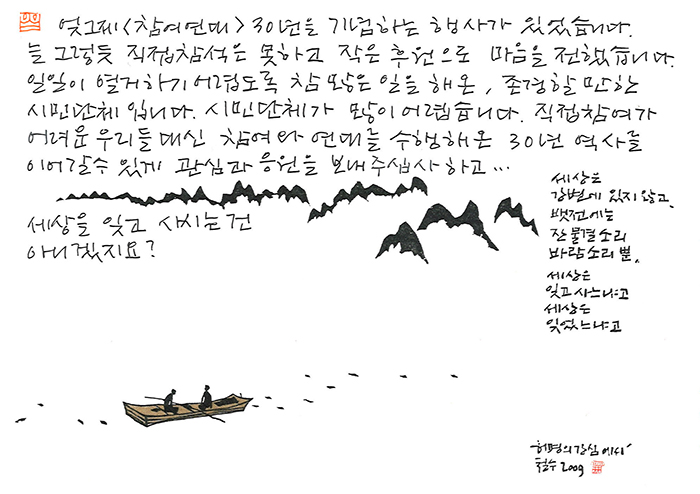 엊그제 <참여연대> 30년을 기념하는 행사가 있었습니다.
늘 그렇듯 직접참석은 못하고 작은 후원으로 마음을 전했습니다.
일일이 열거하기 어렵도록 참 많은 일을 해온, 존경할 만한
시민단체입니다. 시민단체가 많이 어렵습니다. 직접참여가
어려운 우리들 대신 참여와 연대를 수행해온 30년 역사를
이어갈수 있게 관심과 응원을 보내주십사 하고...
세상을 잊고 사시는 건
아니겠지요?
세상은
강변에 있지 않고,
뱃전에는
잔물결소리
바람소리 뿐,
세상은
잊고 사느냐고
세상은
잊었느냐고
'허명의 강심에서'
철수 2009